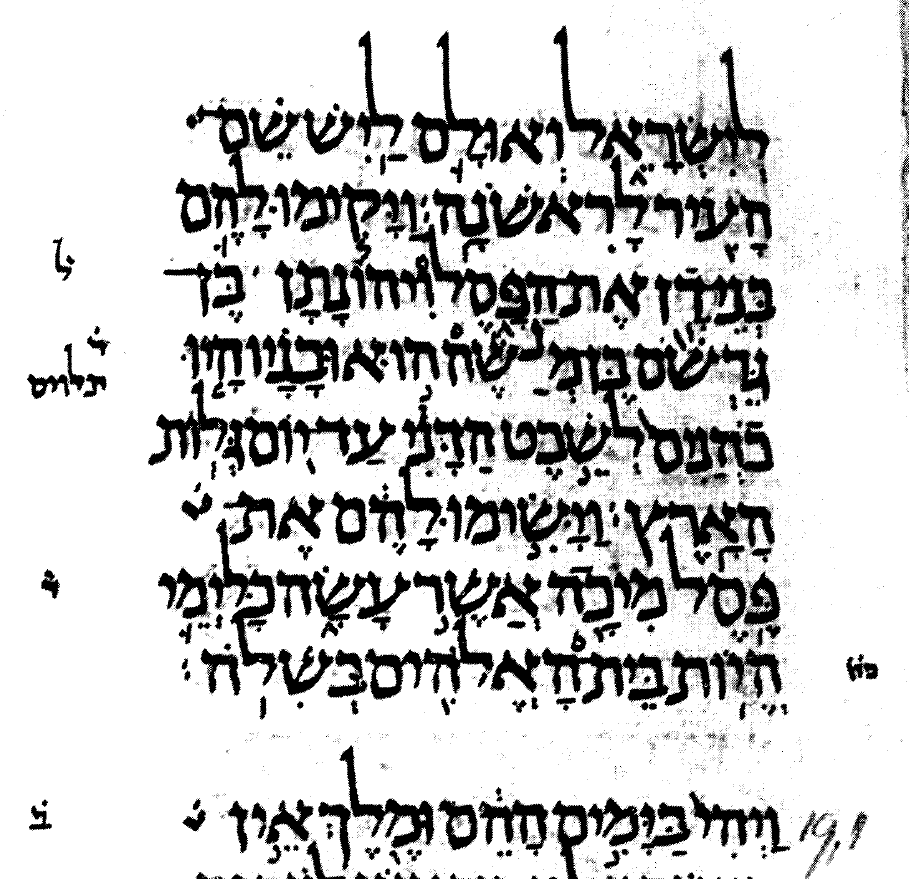 לְיִשְׂרָאֵל וְאוּלָם לַיִשׁ שֵׁם־
הָעִיר לָרִאשֹׁנָה׃ וַיָּקִימוּ לָהֶם
בְּנֵי־דָן אֶת־הַפָּסֶל וִיהוֹנָתָן בֶּן־
ל
גֵּרְשֹׁם בֶּן־מְנַשֶּׁה הוּא וּבָנָיו הָיוּ
ד
תלוים
כֹהֲנִים לְשֵׁבֶט הַדָּנִי עַד־יוֹם גְּלוֹת
הָאָרֶץ׃ וַיָּשִׂימוּ לָהֶם אֶת־
פֶּסֶל מִיכָה אֲשֶׁר עָשָׂה כָּל־יְמֵי
הֱיוֹת בֵּית־הָאֱלֹהִים בְּשִׁלֹה׃
וַיְהִי בַּיָּמִים הָהֵם וּמֶלֶךְ אֵין
19,1